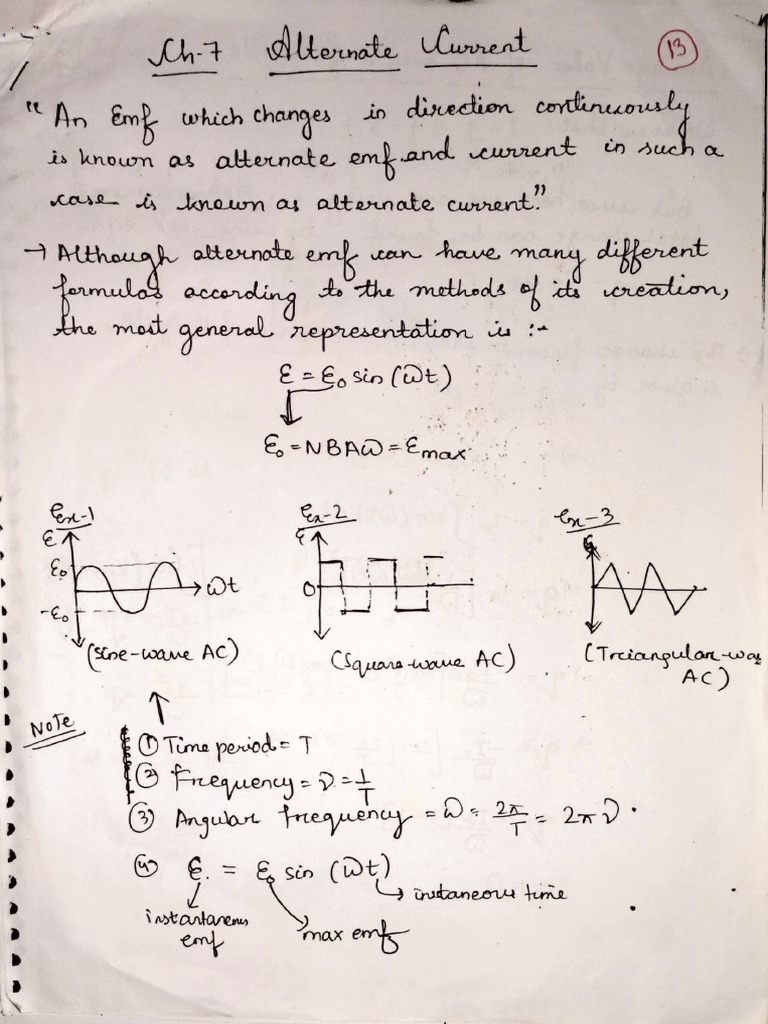 Ch-7 Alternate Current
13
"An Emf which changes in direction continuously
is known as alternate emf and current in such a
case is known as alternate current."
→ Although alternate emf can have many different
formulas according to the methods of its creation,
the most general representation is :-
ε = ε₀ sin (ωt)
ε₀ = NBAω = εmax
Ex-1
Ex-2
Ex-3
ε
ε₀
-ε₀
ωt
ε
0
(Sine-wave AC)
(Square-wave AC)
(Triangular-wa
AC)
Note
① Time period = T
② Frequency = ν = 1/T
③ Angular frequency = ω = 2π/T = 2πν
④ ε = ε₀ sin (ωt)
instaneous time
instantaneous
emf
max emf